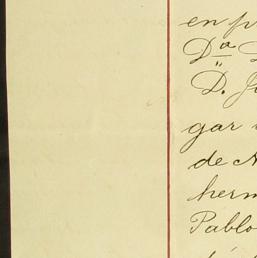 en p
Dª
D. J
gar
de
herm
Pablo